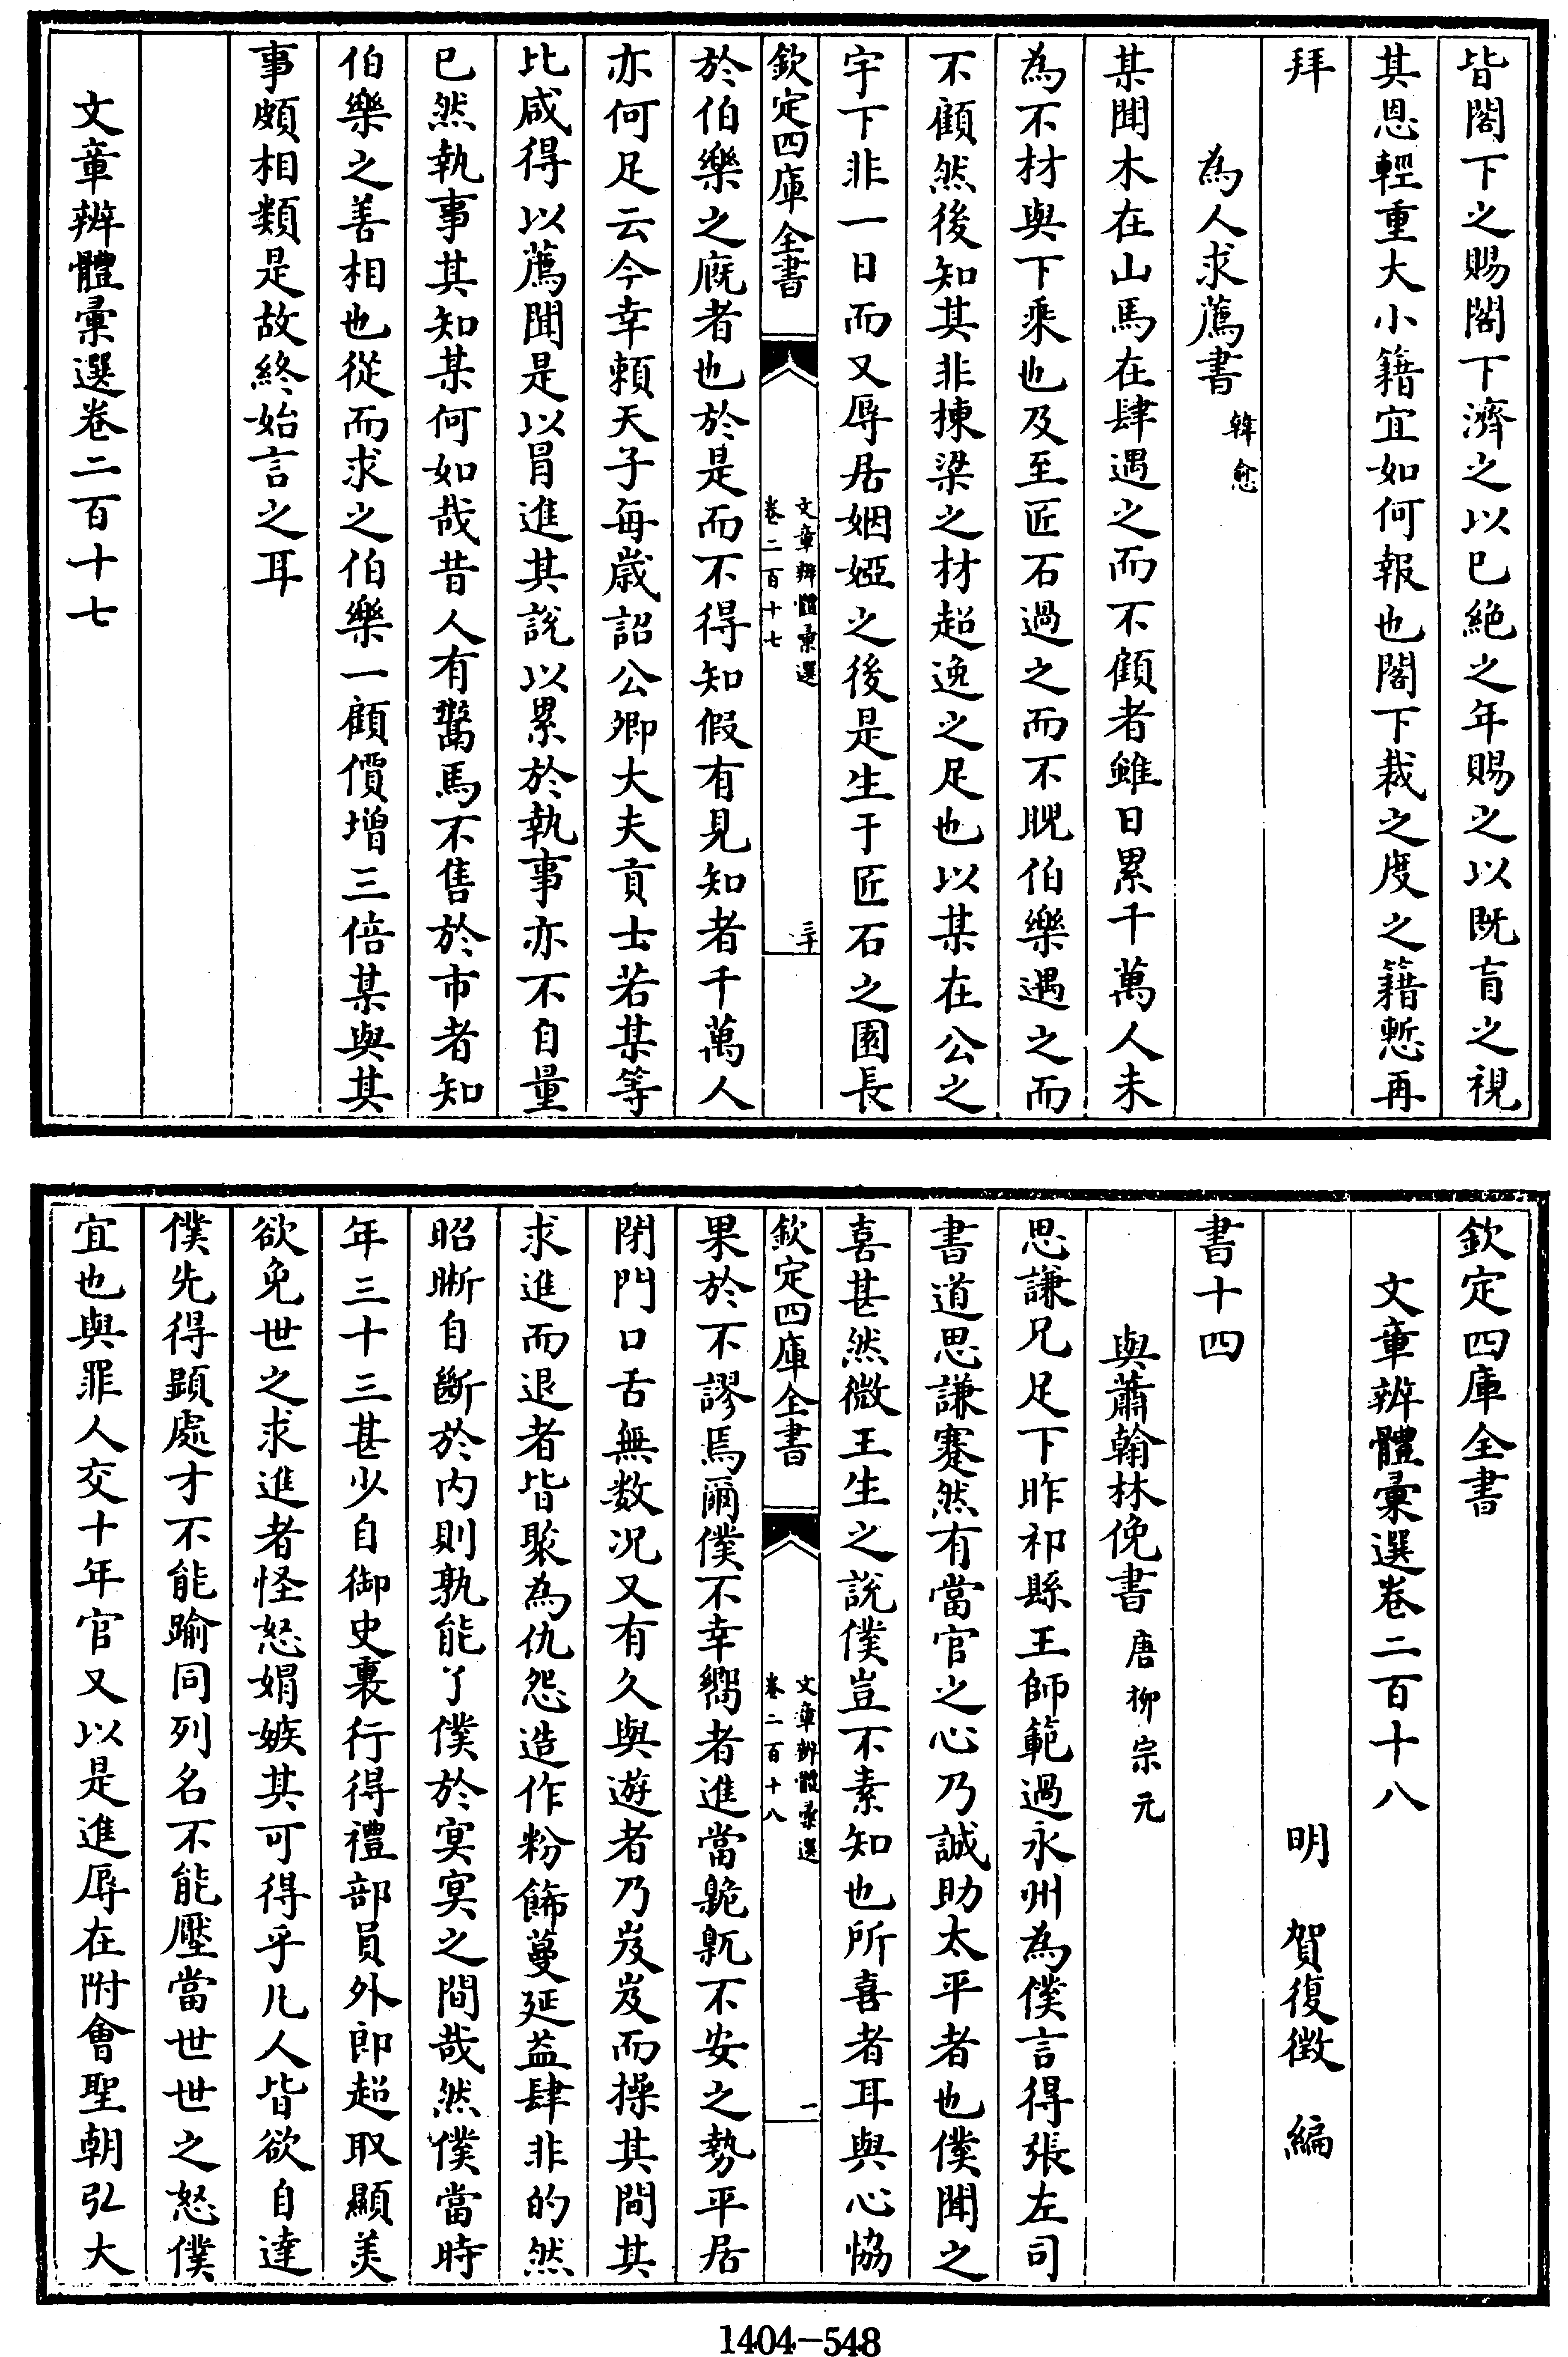 皆閣下之賜閣下濟之以已絶之年賜之以既盲之視
其恩輕重大小籍宜如何報也閣下裁之度之籍慙再
拜
為人求薦書 韓愈
某聞木在山馬在肆遇之而不顧者雖日累千萬人未
為不材與下乘也及至匠石過之而不睨伯樂遇之而
不顧然後知其非棟梁之材超逸之足也以某在公之
宇下非一日而又辱居姻婭之後是生于匠石之園長
欽定四庫全書
文章辨體彙選
卷二百十七
三十
於伯樂之廐者也於是而不得知假有見知者千萬人
亦何足云今幸賴天子每歲詔公卿大夫貢士若某等
比咸得以薦聞是以冐進其說以累於執事亦不自量
已然執事其知某何如哉昔人有鬻馬不售於市者知
伯樂之善相也從而求之伯樂一顧價增三倍某與其
事頗相類是故終始言之耳
文章辨體彙選卷二百十七
欽定四庫全書
文章辨體彙選卷二百十八
明 賀復徵 編
書十四
與蕭翰林俛書 唐柳宗元
思謙兄足下昨祁縣王師範過永州為僕言得張左司
書道思謙蹇然有當官之心乃誠助太平者也僕聞之
喜甚然微王生之說僕豈不素知也所喜者耳與心恊
欽定四庫全書
文章辨體彙選
卷二百十八
一
果於不謬焉爾僕不幸嚮者進當臲卼不安之勢平居
閉門口舌無数况又有久與遊者乃岌岌而操其間其
求進而退者皆聚為仇怨造作粉飾蔓延益肆非的然
昭晰自斷於内則孰能了僕於冥冥之間哉然僕當時
年三十三甚少自御史裏行得禮部員外郎超取顯美
欲免世之求進者怪怒媢嫉其可得乎凡人皆欲自達
僕先得顯處才不能踰同列名不能壓當世世之怒僕
宜也與罪人交十年官又以是進辱在附會聖朝弘大
1404-548